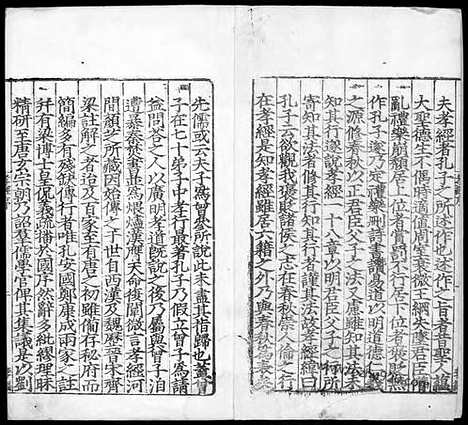 夫孝經者孔子之所述作也述作之旨者昔聖人蘊
大聖德生不偶時適值周室衰微王綱失墜君臣僭
亂禮樂崩頹居上位者賞罰不行居下位者褒貶無
作孔子遂乃定禮樂刪詩書讚易道以明道德仁義
之源修春秋以正君臣父子之法又慮雖知其法未
知其行遂說孝經一十八章以明君臣父子之行所
寄知其法者修其行知其行者謹其法故孝經緯曰
孔子云欲觀我褒貶諸侯之志在春秋崇人倫之行
在孝經是知孝經雖居六籍之外乃與春秋為表
先儒或云夫子為曾參所說此未盡其指歸也蓋曾
子在七十弟子中孝行最著孔子乃假立曾子為請
益問荅之人以廣明孝道既說之後乃屬與曾子洎
遭暴秦焚書並為煨燼漢膺天命復闡微言孝經河
間顏芝所藏因始傳之于世自西漢及魏歷晉宋齊
梁註解之者迨及百家至有唐之初雖備存秘府而
簡編多有殘缺傳行者唯孔安國鄭康成兩家之註
幷有梁博士皇侃義疏播於國序然辭多紕繆理昧
精研至唐玄宗朝乃詔羣儒學官俾其集議是以劉